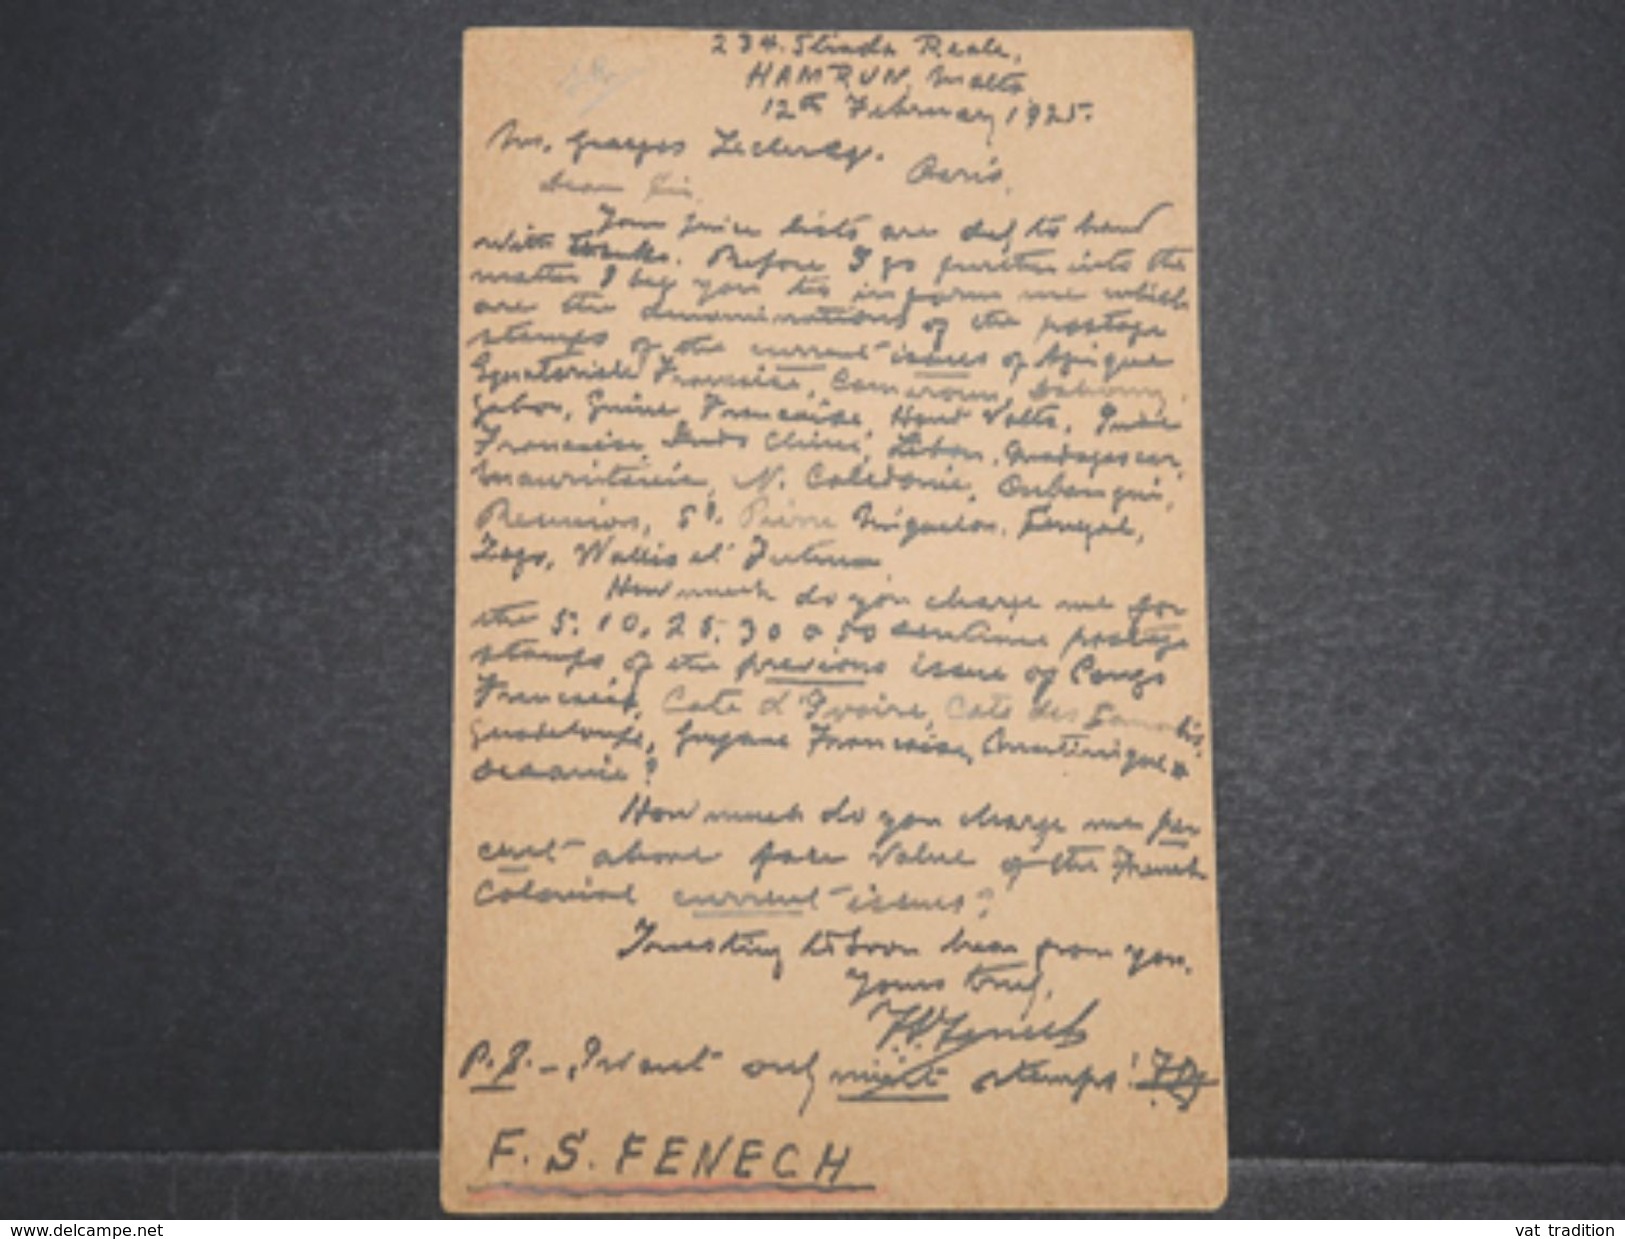 234. Strada Reale,
HAMRUN, Malta
12th February 1925.
Mr. Georges Leclercq.
Paris.
Dear Sir,
Your price lists are duly to hand
with thanks. Before I go further into the
matter I beg you to inform me which
are the denominations of the postage
stamps of the current issues of Afrique
Equatoriale Francaise, Cameroun, Dahomey,
Gabon, Guinee Francaise, Haut Volta, Inde
Francaise, Indo Chine, Liban, Madagascar,
Mauritanie, N. Caledonie, Oubangui,
Reunion, St. Pierre Miquelon, Senegal,
Togo, Wallis et Futuna
How much do you charge me for
the 5, 10, 25, 30 & 50 centimes postage
stamps of the previous issue of Congo
Francais, Cote d'Ivoire, Cote des Somalis,
Guadeloupe, Guyane Francaise, Martinique &
Oceanie?
How much do you charge me per
cent above face value of the French
Colonial current issues?
Trusting to soon hear from you.
Yours truly,
F.S. Fenech
P.S. – I want only mint stamps!
F. S. FENECH
www.delcampe.net
vat tradition